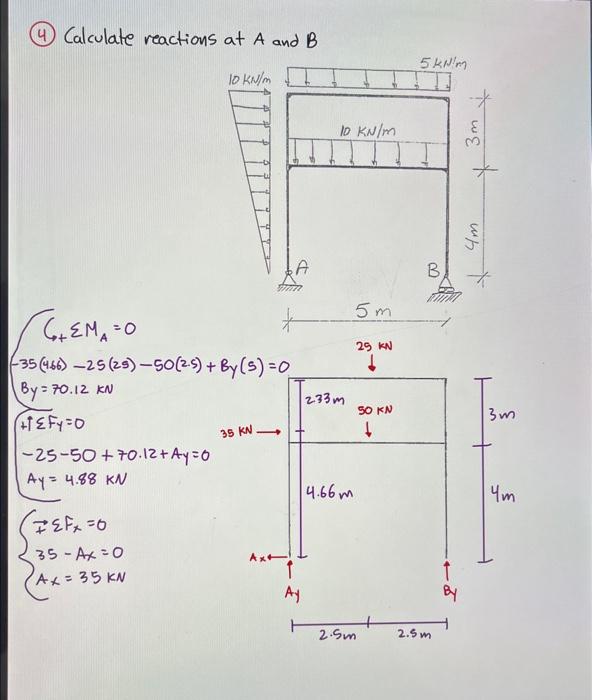 ④ Calculate reactions at A and B
5 kN/m
10 KN/m
10 KN/m
3m
4m
A
B
5m
↺+ ΣM_A = 0
-35(4.66) -25(2.5) -50(2.5) + By(5) = 0
By = 70.12 KN
+↑ΣFy=0
-25-50+70.12+Ay=0
Ay = 4.88 KN
ΣFx = 0
35 - Ax = 0
Ax = 35 KN
25 KN
2.33m
50 KN
35 KN
3m
4.66m
4m
Ax
Ay
By
2.5m
2.5m